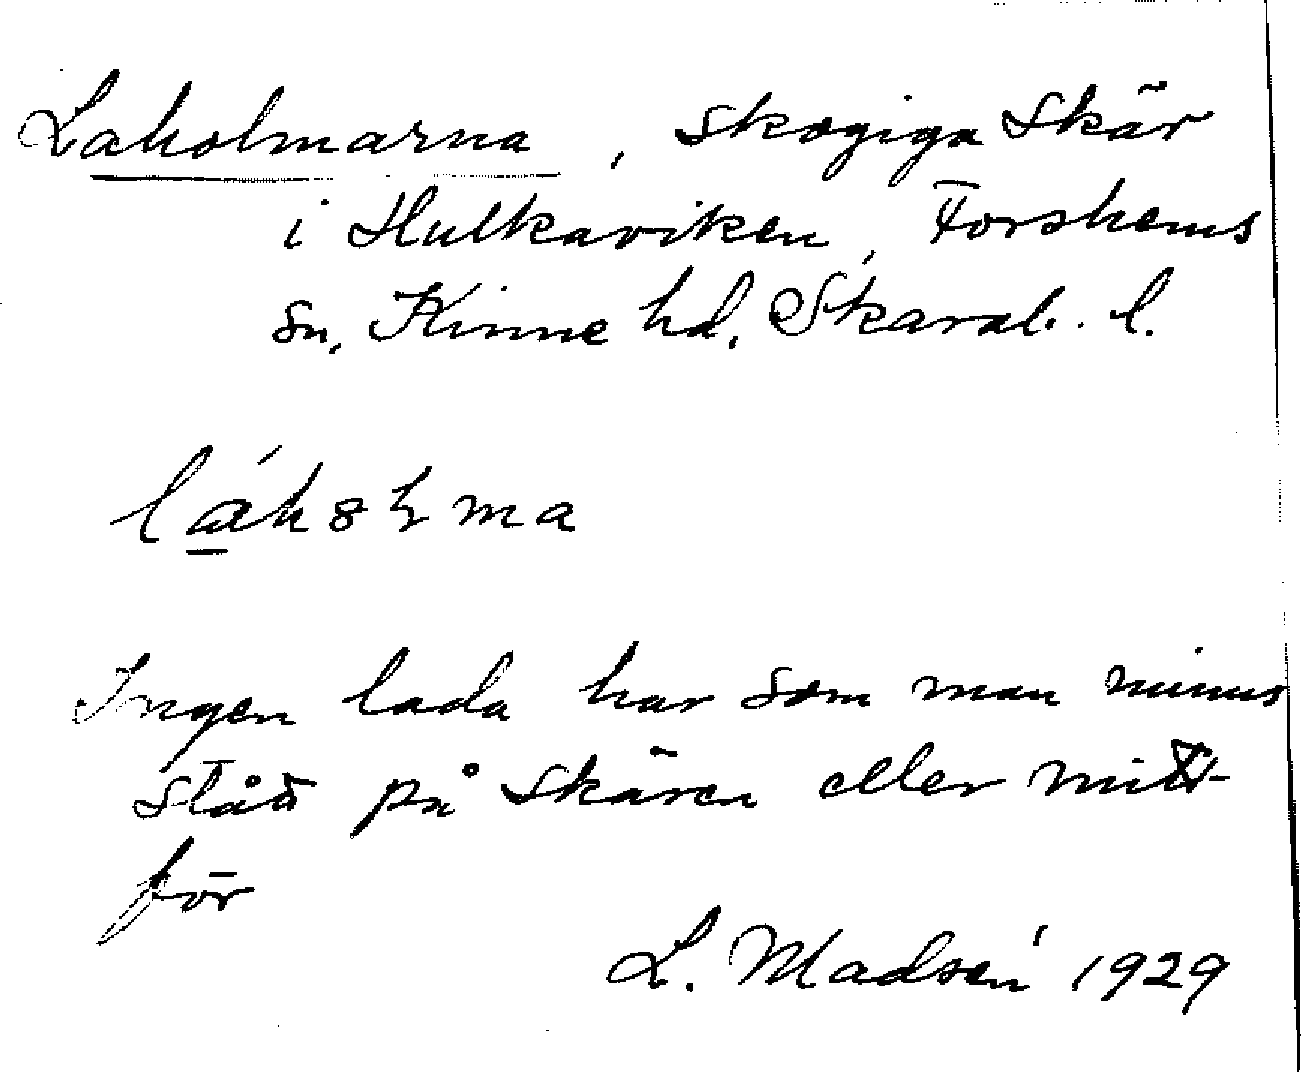 Laholmarna, skogiga skär
i Hulkaviken, Forshems
sn, Kinne hd, Skarab. l.
Ingen lada har som man minns
stått på skären eller mitt
för
L. Madsén 1929